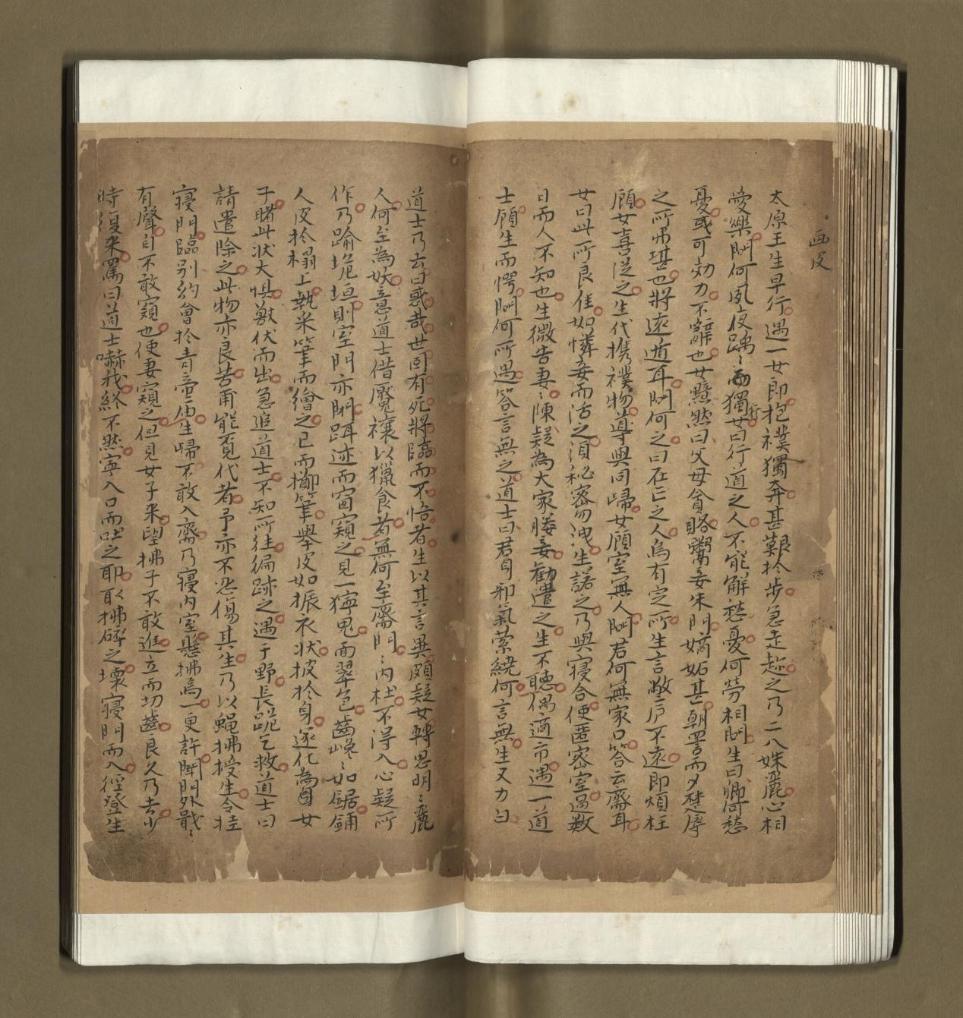 画皮
太原王生早行遇一女郎抱襆獨奔甚艱於步急走趂之乃二八姝麗心相
愛樂問何夙夜踽〻獨行女曰行道之人不能解愁憂何勞相問生曰卿何愁
憂或可効力不辭也女黯然曰父母貪賂鬻妾朱門嫡妬甚朝詈而夕楚辱
之所弗堪也將遠遁耳問何之曰在亡之人烏有定所生言敝廬不遠即煩枉
顧女喜從之生代携襆物導與同歸女顧室無人問君何無家口答云齋耳
女曰此所良佳如憐妾而活之須秘密勿洩生諾之乃與寢合使匿密室過數
日而人不知也生微告妻〻陳疑為大家媵妾勸遣之生不聽偶適市遇一道
士顧生而愕問何所遇答言無之道士曰君身邪氣縈繞何言無生又力白
道士乃去曰惑哉世固有死將臨而不悟者生以其言異頗疑女轉思明〻麗
人何至為妖意道士借魘禳以獵食者無何至齋門〻內杜不得入心疑所
作乃踰垝垣則室門亦閉躡迹而窗窺之見一獰鬼面翠色齒巉〻如鋸鋪
人皮於榻上執采筆而繪之已而擲筆舉皮如振衣狀披於身遂化為女
子睹此狀大懼獸伏而出急追道士不知所往徧跡之遇于野長跪乞救道士曰
請遣除之此物亦良苦甫能覓代者予亦不忍傷其生乃以蠅拂授生令挂
寢門臨別約會於青帝廟生歸不敢入齋乃寢內室懸拂焉一更許聞門外戢〻
有聲自不敢窺也使妻窺之但見女子來望拂子不敢進立而切齒良久乃去少
時復來罵曰道士嚇我終不然寧入口而吐之耶取拂碎之壞寢門而入徑登生